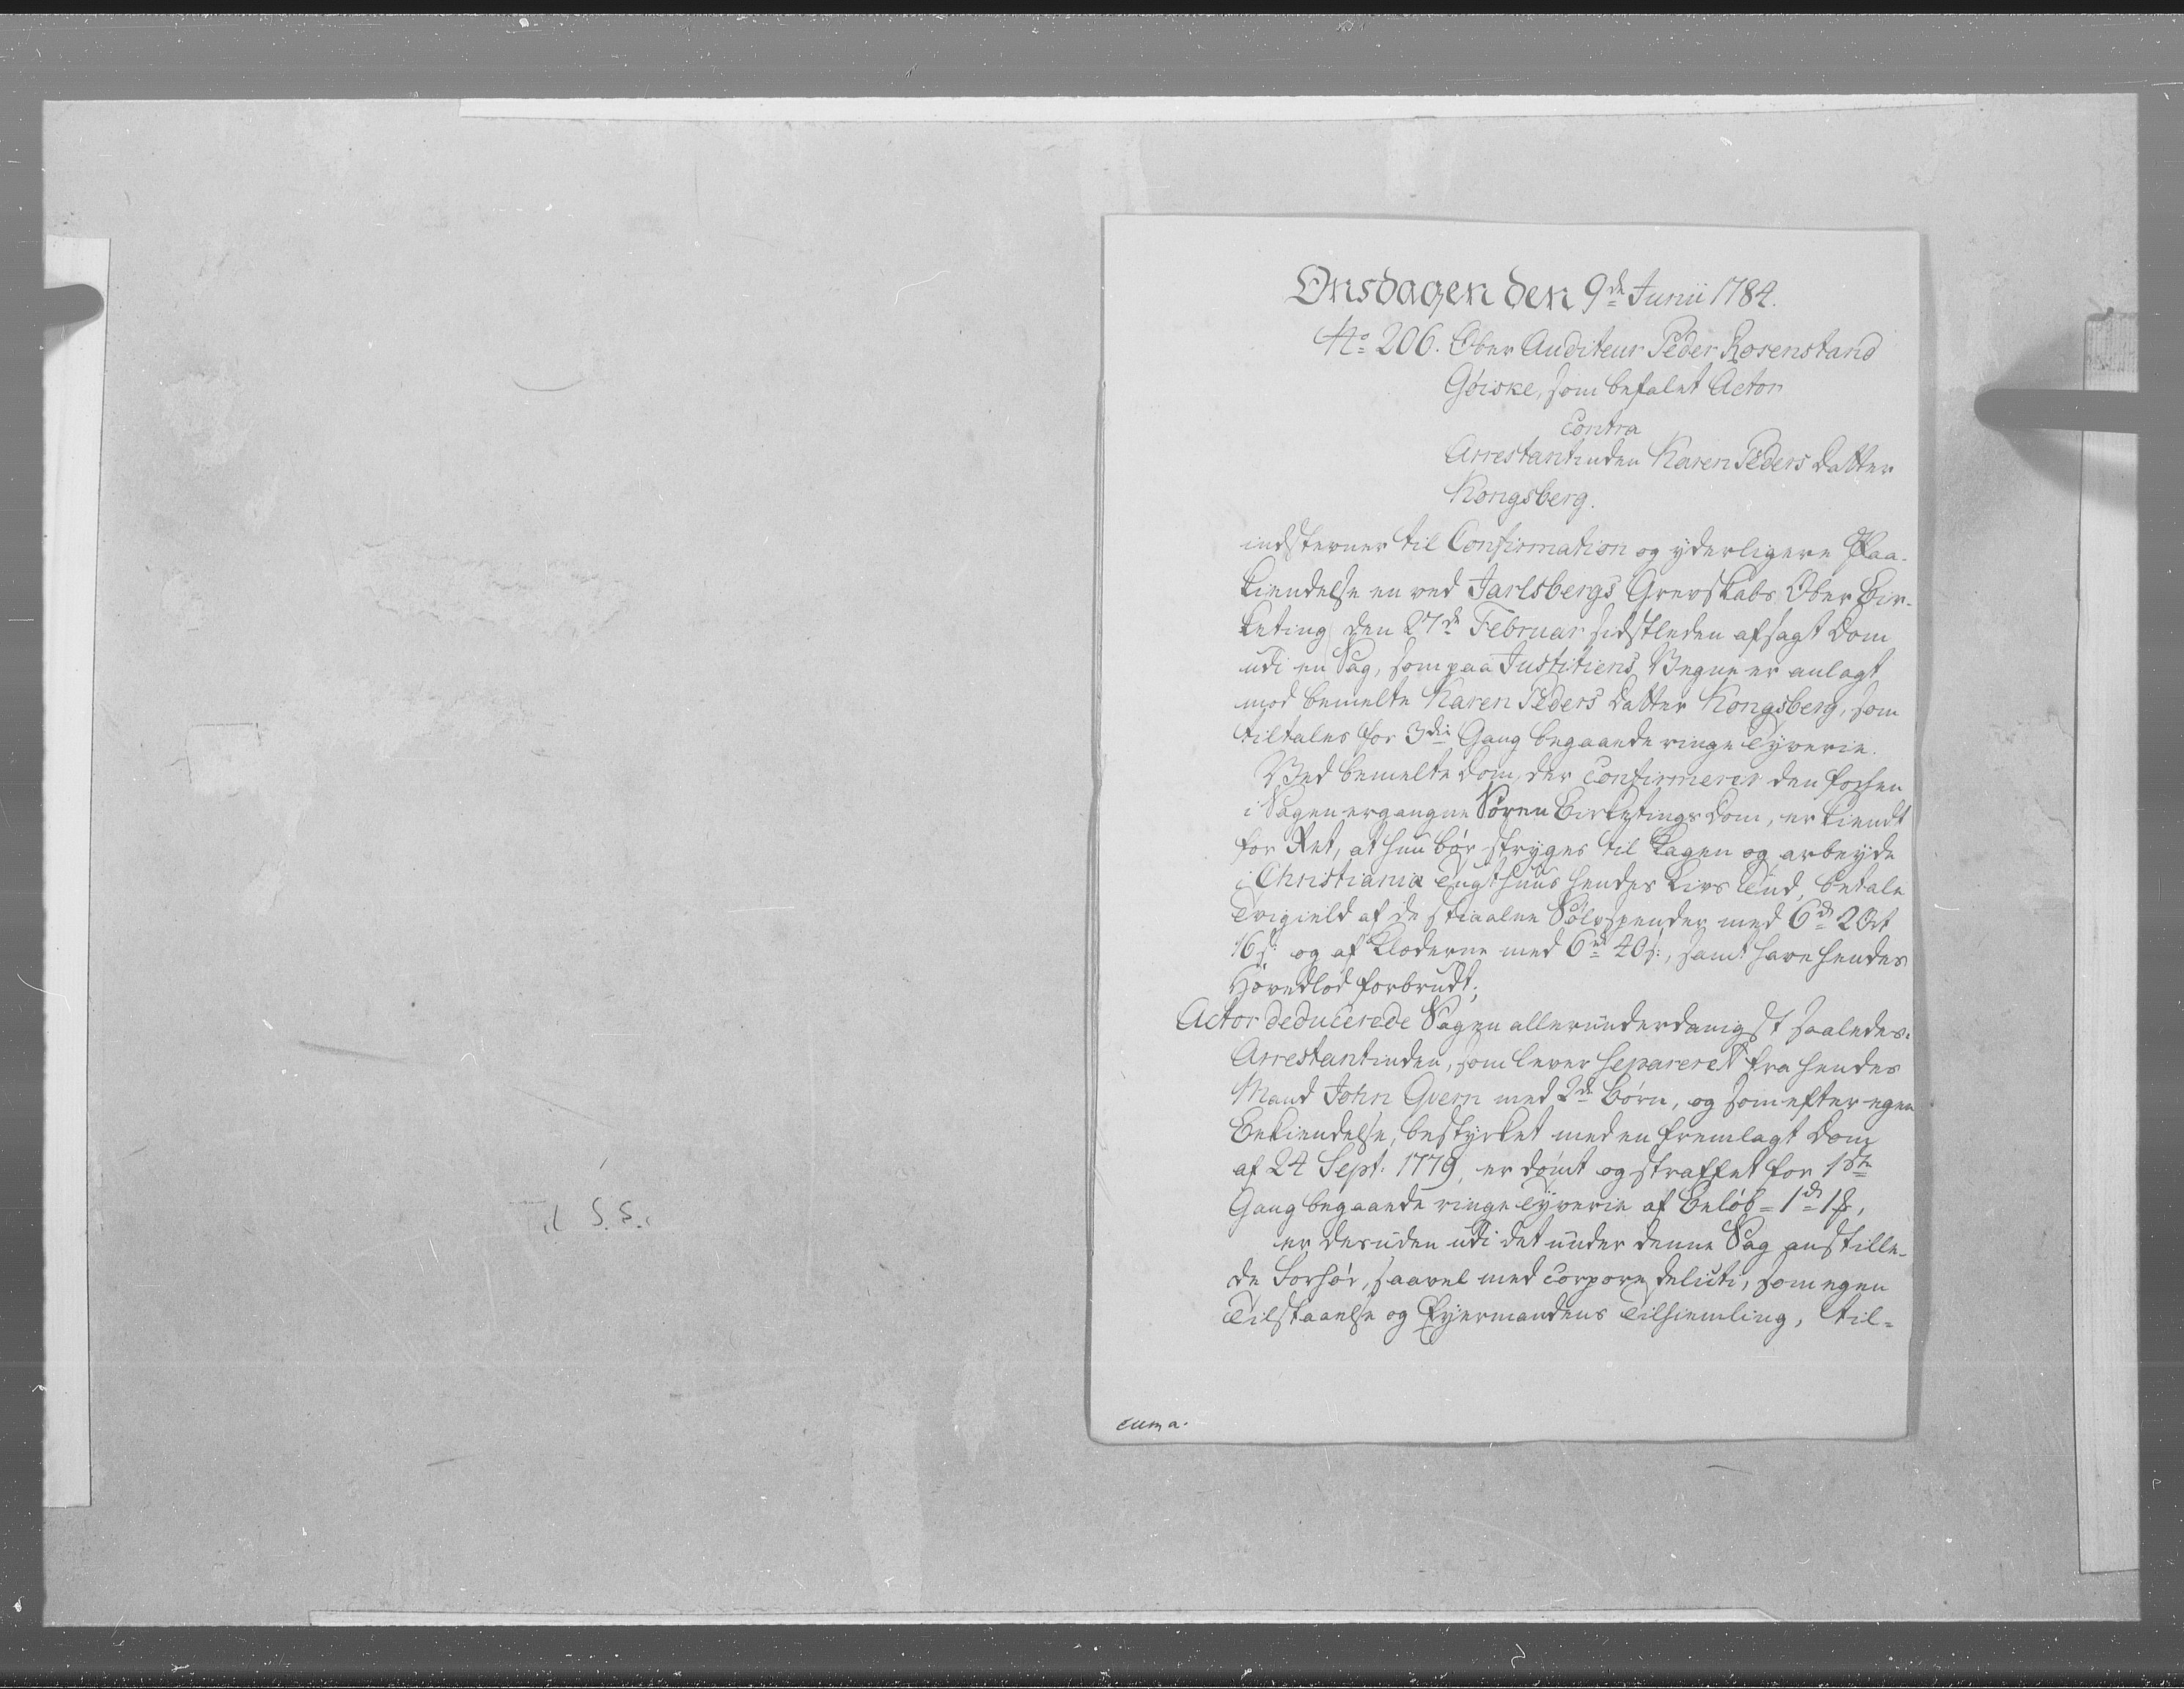 Onsdagen den 9de Junii 1784.
No 206. Ober Auditeur Peder Rosenstand
Göiske, som befalet Actor
Contra
Arrestantinden Karen Peders Datter
Kongsberg.
indstevner til Confirmation og yderligere Paa-
kiendelse en ved Jarlsbergs Grevskabs Ober Bir-
keting den 27de Februar sidstleden afsagt Dom
udi en Sag, som paa Justitiens Vegne er anlagt
mod bemelte Karen Peders Datter Kongsberg, som
tiltales for 3die Gang begaaede ringe Tyverie.
Ved bemelte Dom, der Confirmerer den forhen
i Sagen ergangne Sørem Birketings Dom, er kiendt
for Ret, at hun bör stryges til Kagen og arbeyde
i Christiania Tugthuus hendes Livs Tiid, betale
Tvigield af de stiaalne Sölvspender med 6d 2 Ort
16 s: og af Kloderne med 6rd 40 s:, samt have hendes
Hovedlod forbrudt;
Actor deducerede Sagen allerunderdanigst saaledes:
Arrestantinden, som lever separeret fra hendes
Mand John Qvern med 2de Börn, og som efter egen
Bekiendelse, bestyrket med en fremlagt Dom
af 24 Sept: 1779, er dömt og straffet for 1ste
Gang begaaede ringe Tyverie af Belöb = 1d 1 s,
er desuden udi det under denne Sag anstille-
de Forhör, saavel med Corpore delicti, som egen
Tilstaaelse og Eyermandens Tilhiemling, til-
cum a.
Til S. S.